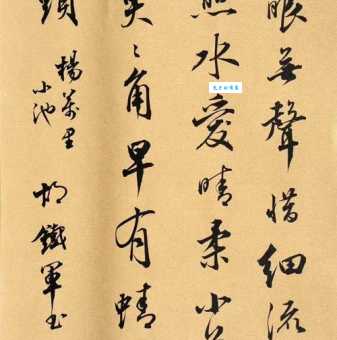 眼無聲惜細流
照水愛晴柔小
尖〻角早有蜻
頭
楊萬里
小池
胡鐵軍书